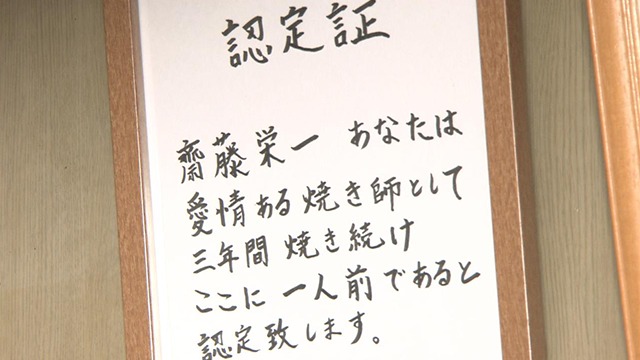 認定証
齋藤栄一 あなたは
愛情ある焼き師として
三年間 焼き続け
ここに 一人前であると
認定致します。